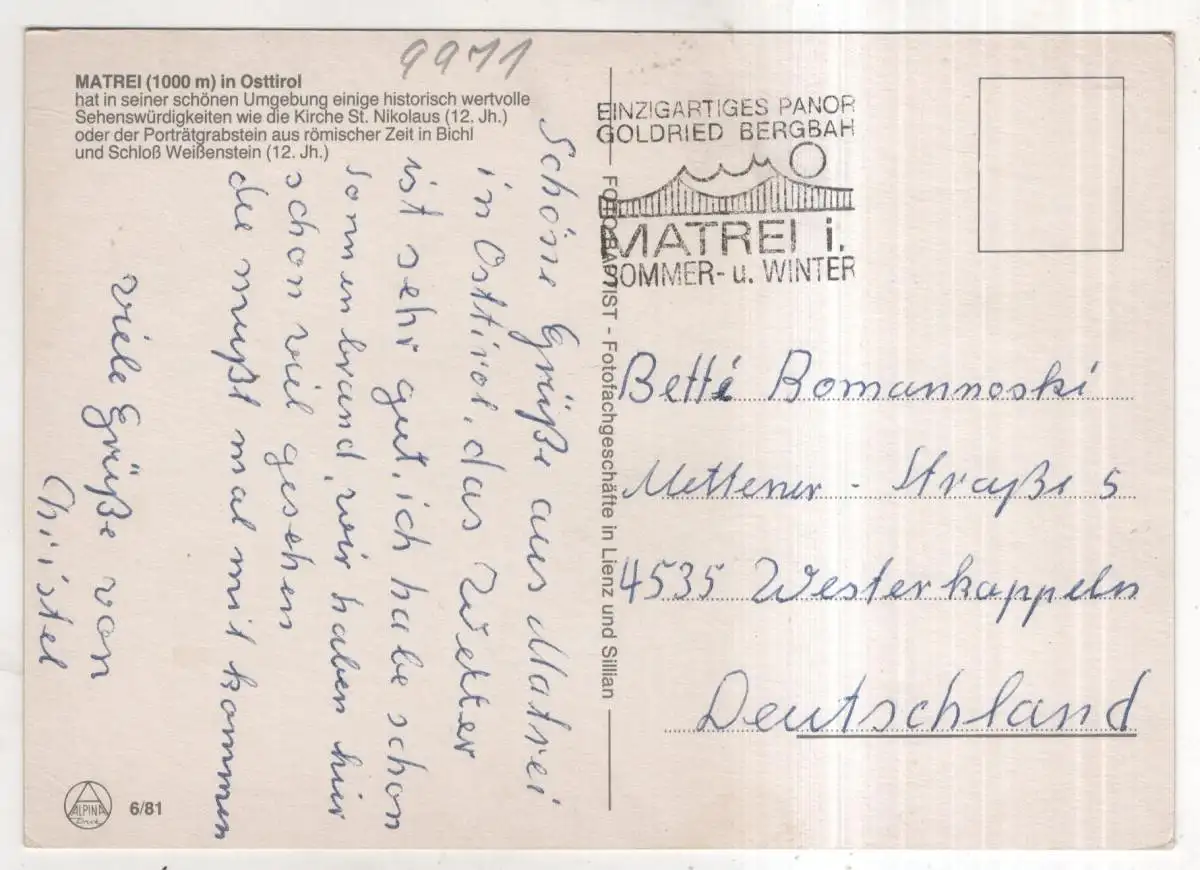 9971
MATREI (1000 m) in Osttirol
hat in seiner schönen Umgebung einige historisch wertvolle
Sehenswürdigkeiten wie die Kirche St. Nikolaus (12. Jh.)
oder der Porträtgrabstein aus römischer Zeit in Bichl
und Schloß Weißenstein (12. Jh.)
Schöne Grüße aus Matrei
in Osttirol. das Wetter
ist sehr gut. ich habe schon
Sonnenbrand, wir haben hir
schon viel gesehen
du mußt mal mit kommen
viele Grüße von
Christel
ALPINA
Druck
6/81
FOTO BAPTIST - Fotofachgeschäfte in Lienz und Sillian
EINZIGARTIGES PANOR
GOLDRIED BERGBAH
MATREI i.
SOMMER- u. WINTER
Betti Bomannoski
Mettener - Straße 5
4535 Westerkappeln
Deutschland